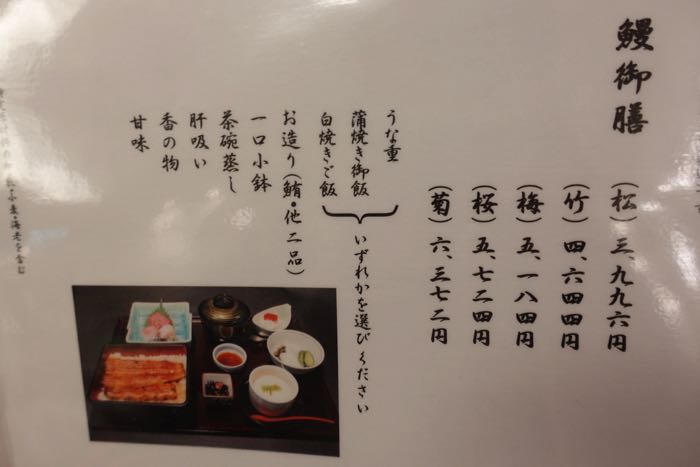 鰻御膳
(松)三、九九六円
(竹)四、六四四円
(梅)五、一八四円
(桜)五、七二四円
(菊)六、三七二円
うな重
蒲焼き御飯
白焼きご飯
いずれかを選びください
お造り(鮪・他二品)
一口小鉢
茶碗蒸し
肝吸い
香の物
甘味
小麦・海老を含む